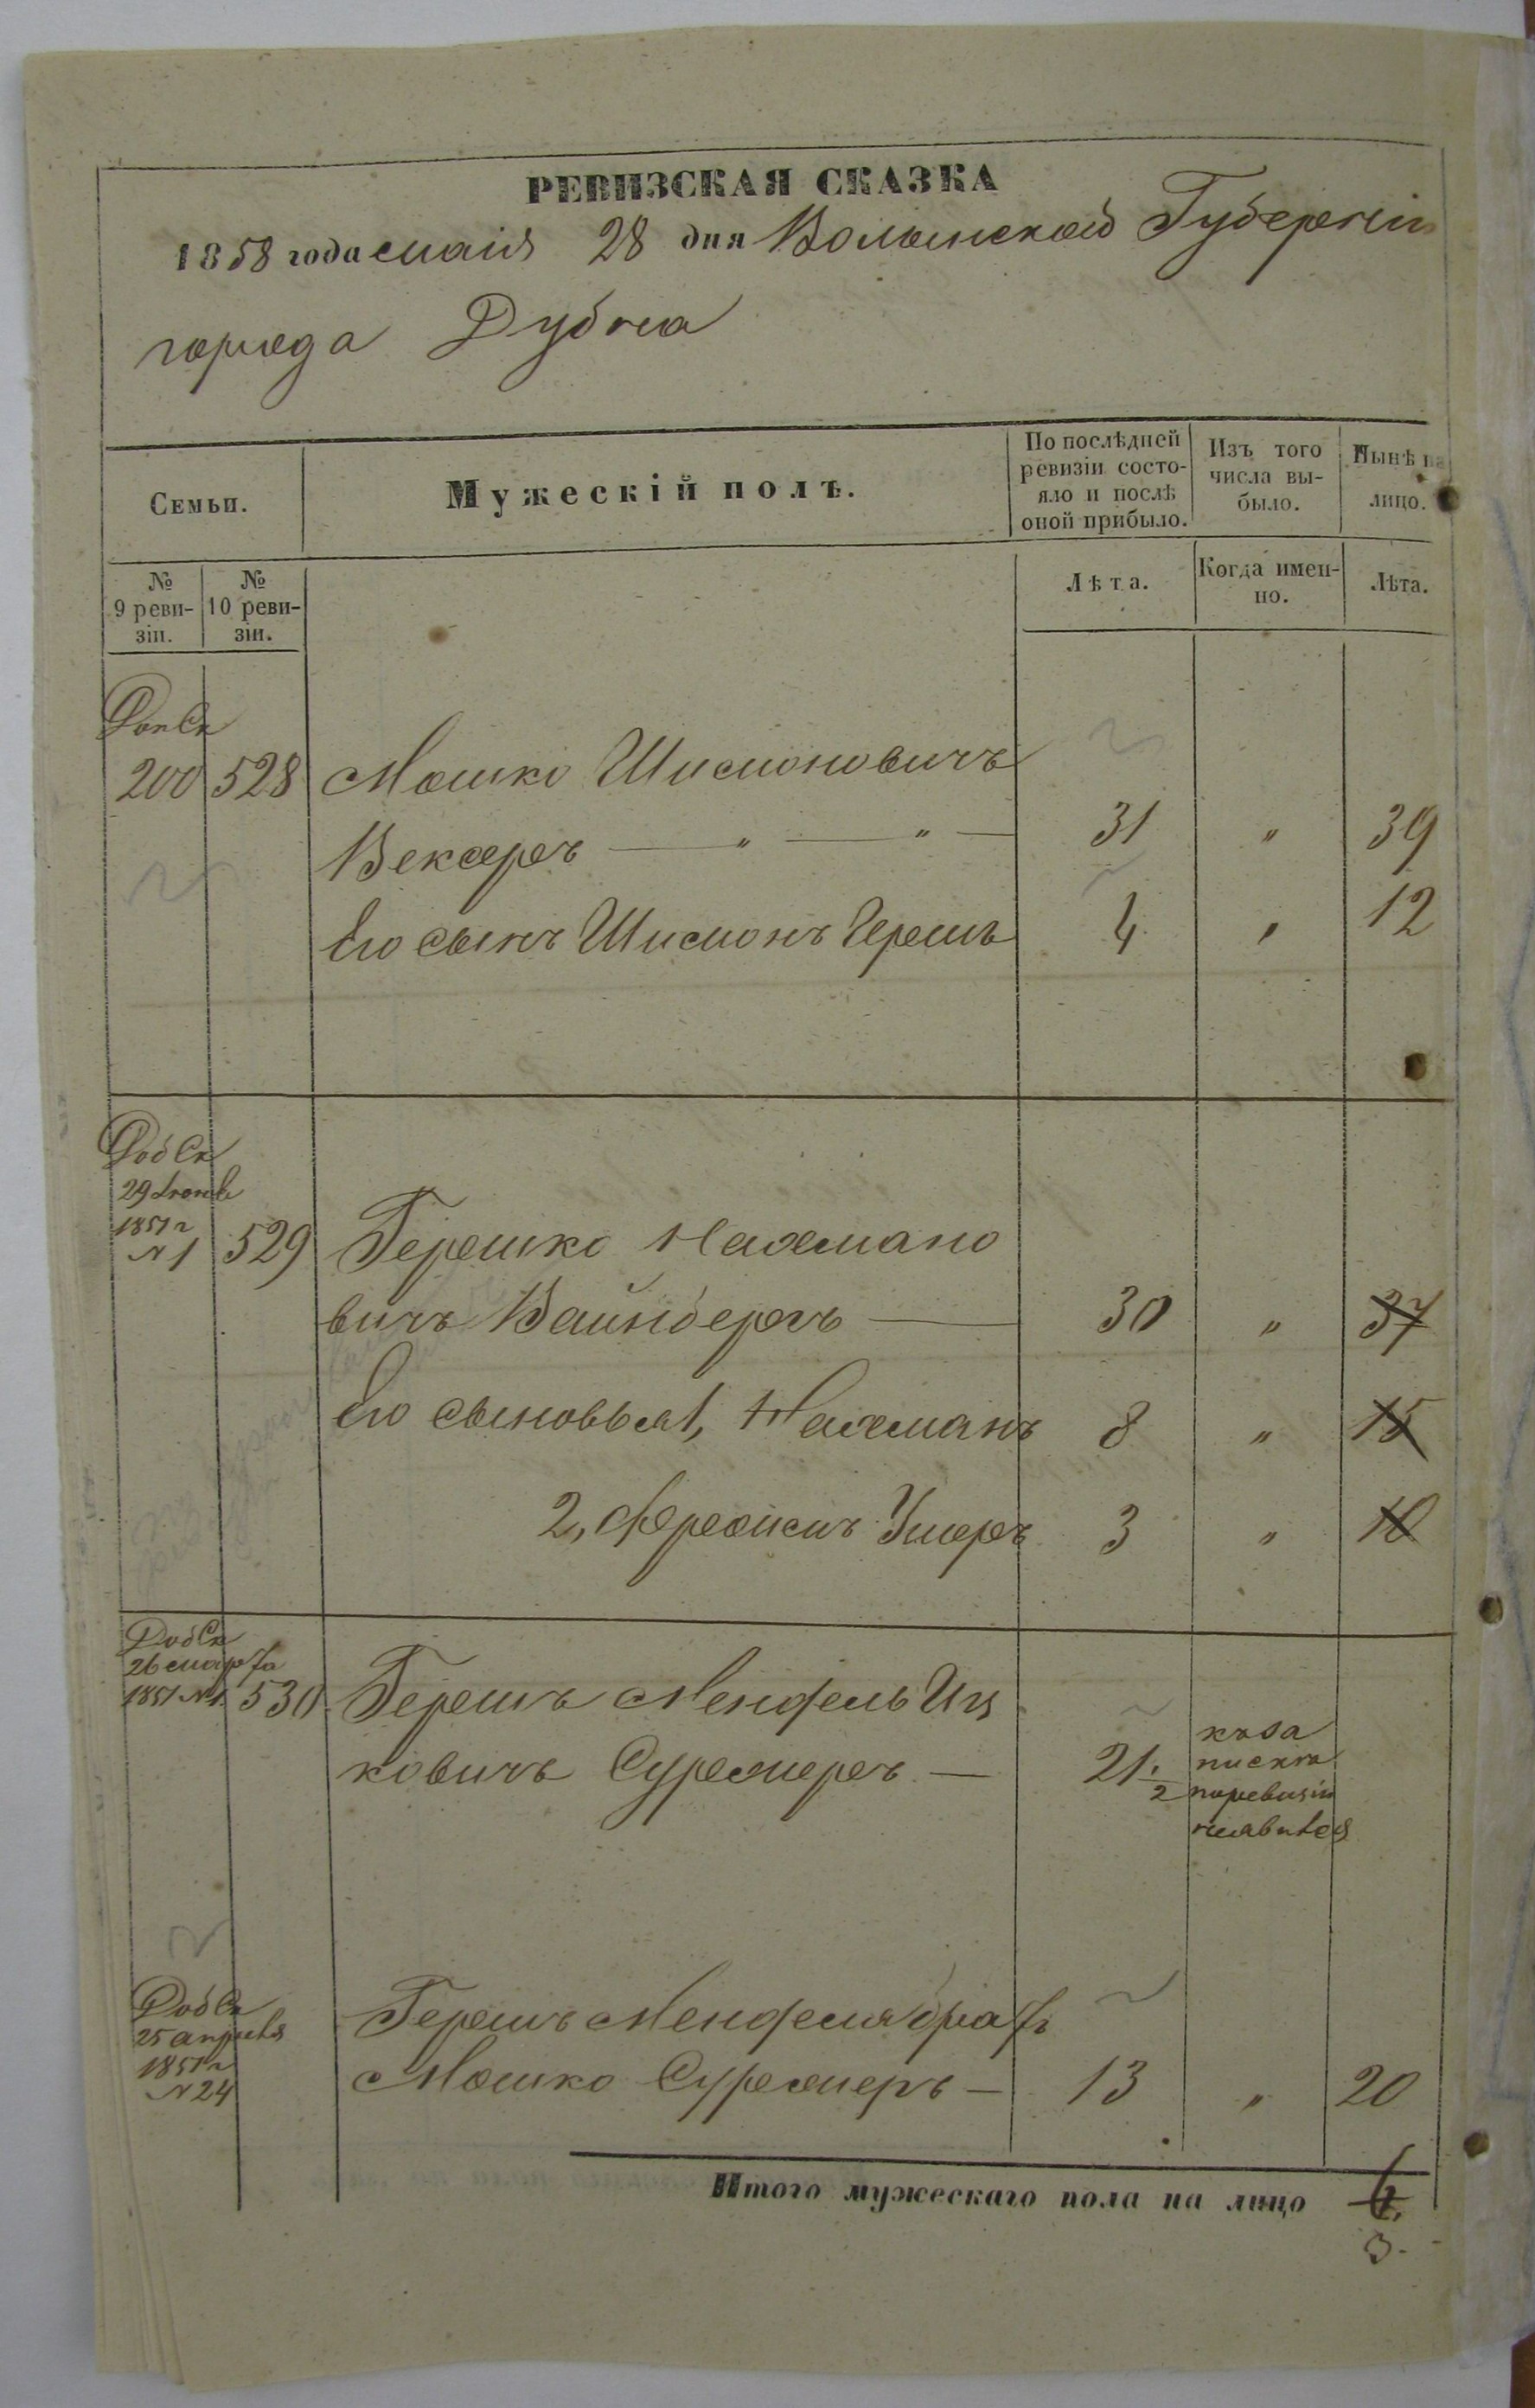 РЕВИЗСКАЯ СКАЗКА
1858 года маія 28 дня Волынской Губерніи
города Дубна
Семьи.
Мужескій полъ.
По послѣдней ревизіи состо-
яло и послѣ оной прибыло.
Изъ того числа вы-
было.
Нынѣ на лицо.
№ 9 реви-
зіи.
№ 10 реви-
зіи.
Лѣта.
Когда имен-
но.
Лѣта.
200 528 Мошко Шимоновичъ
Векслеръ — " — " — 31 " 39
Его сынъ Шимонъ Герешъ 4 " 12
Доб Ск
29 Іюня
1851 г
№ 1 529 Герешко Нахмано
вичъ Вайнбергъ — 30 " 37
Его сыновья 1, Нахманъ 8 " 15
2, Умеръ 3 " 10
Доб Ск
26 марта
1851 № 1 530 Герешъ Мендель Иц
ковичъ — 21 1/2
Доб Ск
25 апреля
1851 г
№ 24
Герешъ Менделя братъ
Мошко — 13 " 20
Итого мужескаго пола на лицо 6.
3.